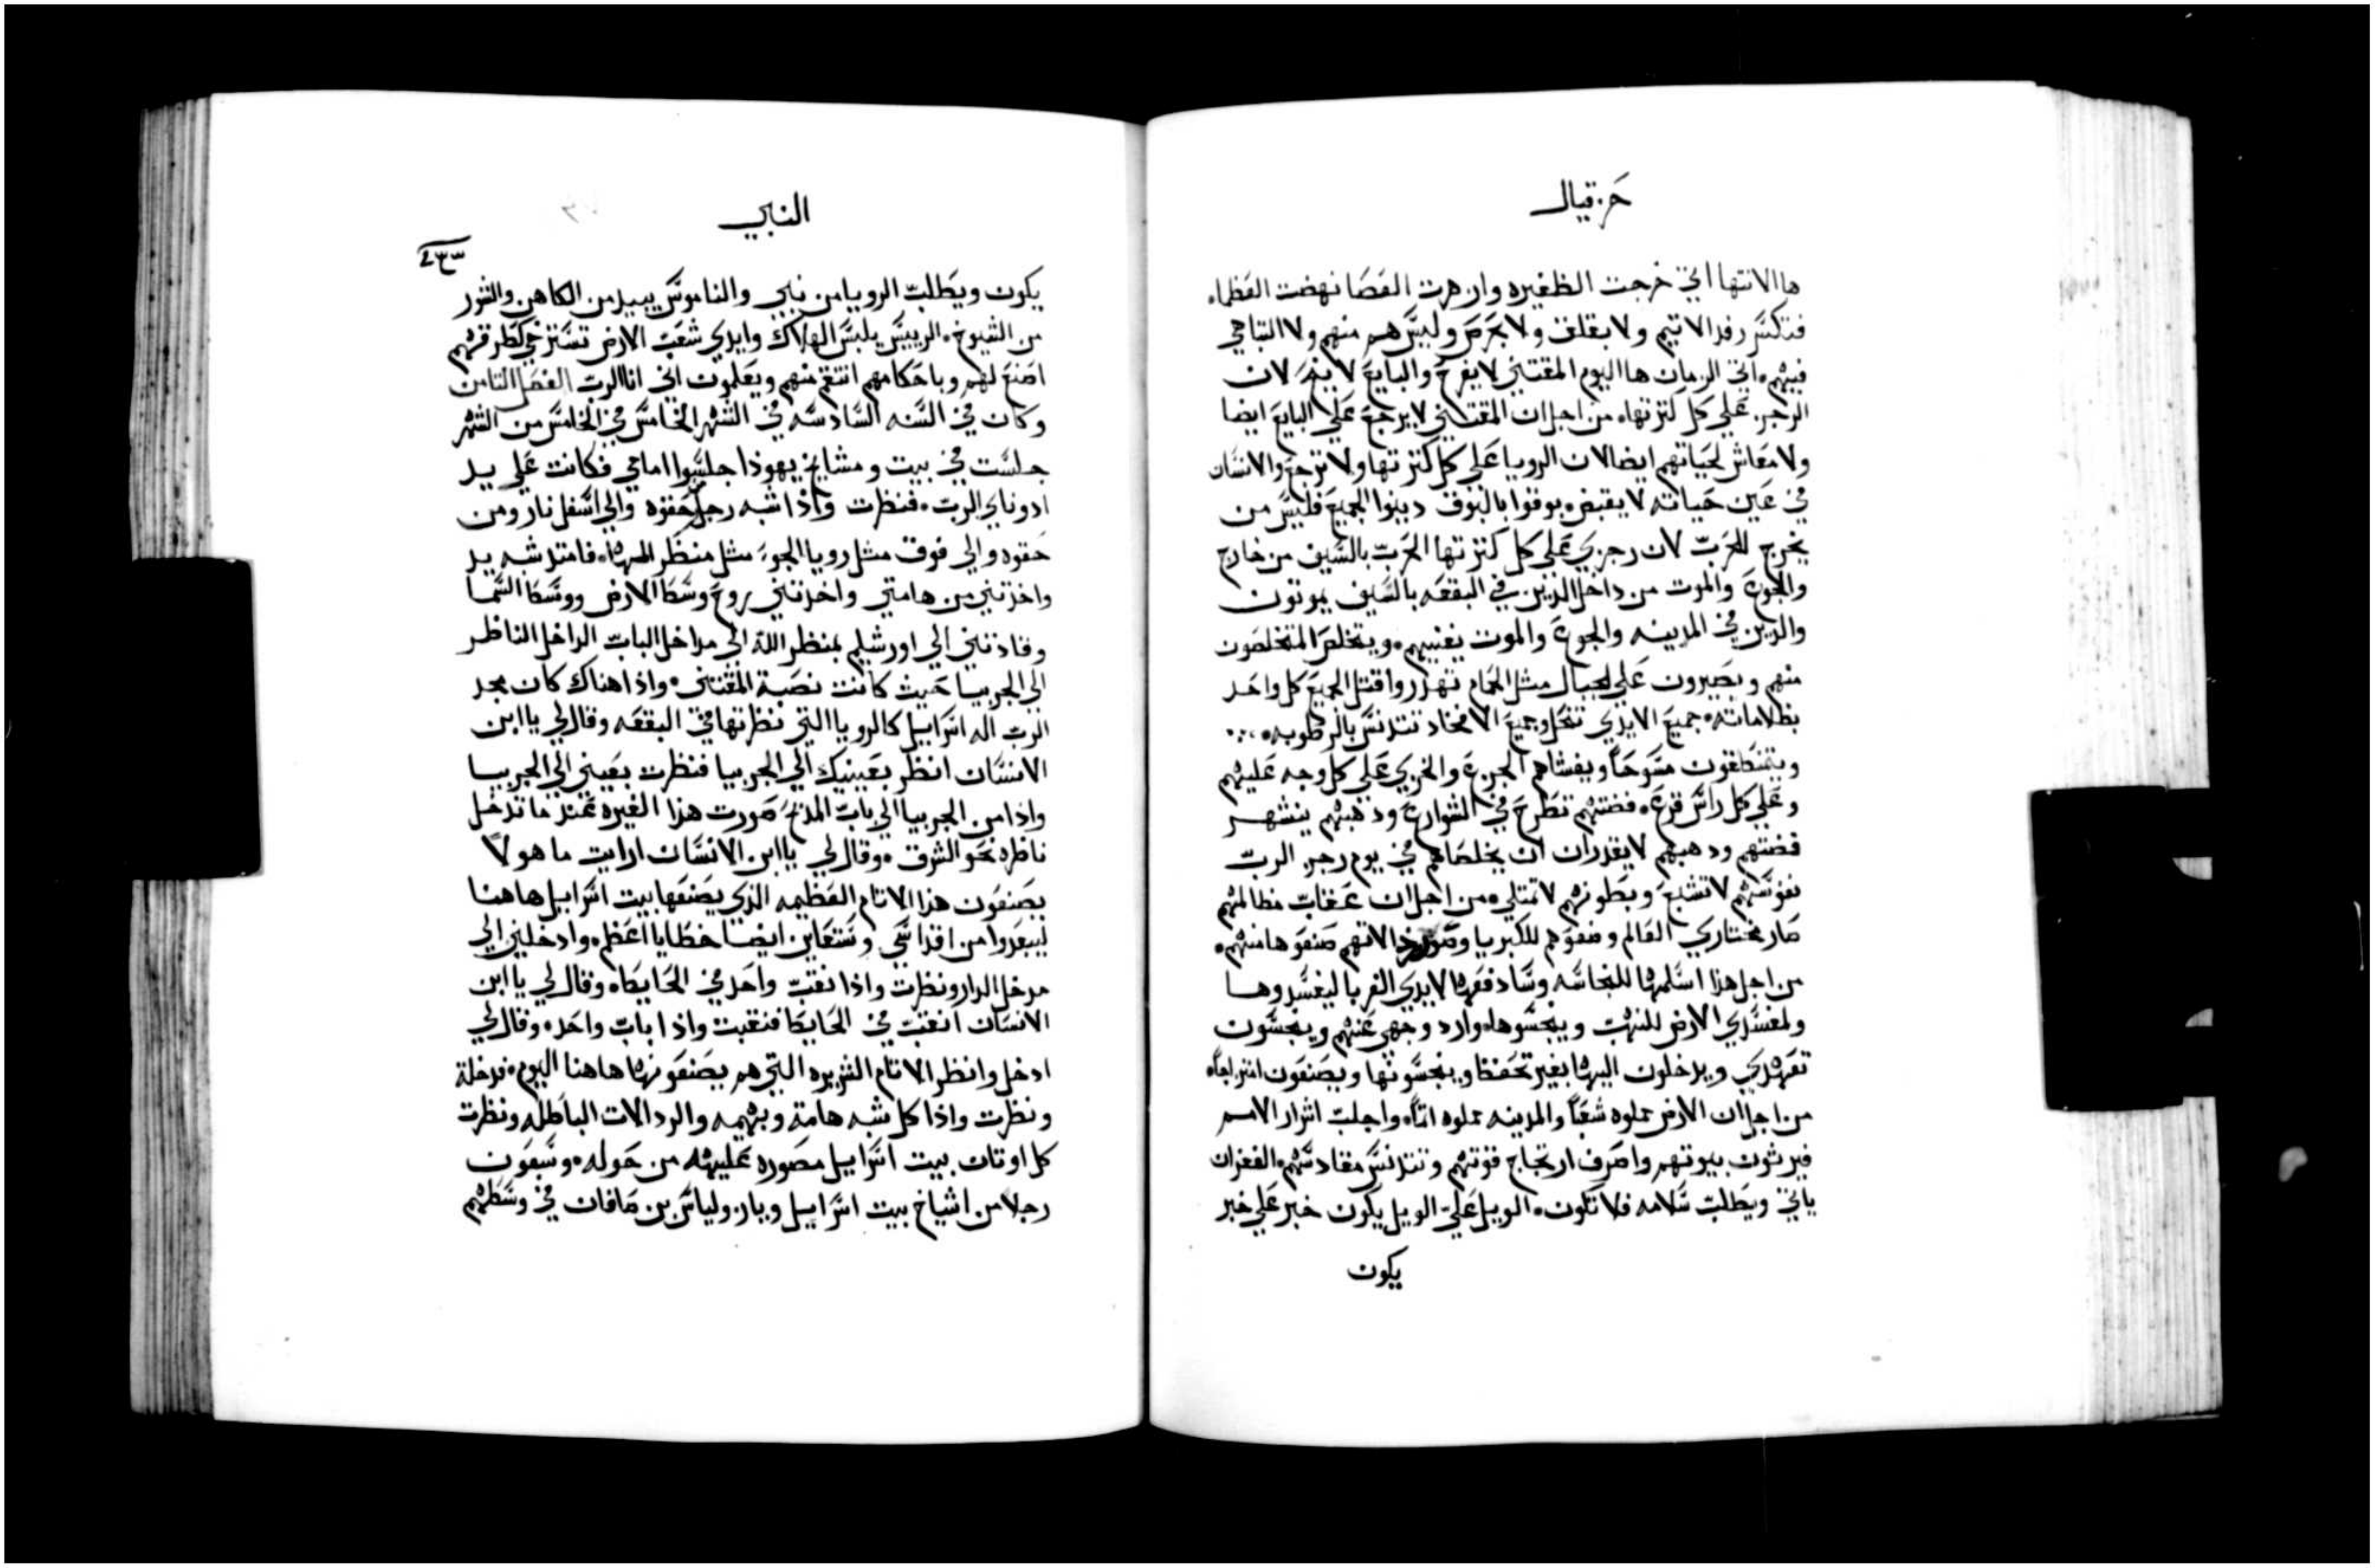 حزقيال
ها الانتها اتي خرجت الظفيره وازهرت العصا نهضت العظماء
فتكسر رفد الاثيم ولا بقلق ولا بحرص وليس هم منهم ولا التباهي
فيهم اتي الزمان ها اليوم المقتني لا يفرح والبايع لا ينح لان
الرجز علي كل كثرتها من اجل ان المقتني لا يرجع علي البايع ايضا
ولا معاش لحياتهم ايضا لان الرويا علي كل كثرتها ولا ترجع والانسان
في عين حياته لا يقبض بوقوا بالبوق دينوا الجميع فليس من
يخرج للحرب لان رجزي علي كل كثرتها الحرب بالسيف من خارج
والجوع والموت من داخل الذين في البقعه بالسيف يموتون
والذين في المدينه والجوع والموت يفنيهم ويتخلص المتخلصون
منهم ويصيرون علي الجبال مثل الحمام تهدر واقتل الجميع كل واحد
بظلاماته جميع الايدي تنحل وجميع الافخاد تتدنس بالرطوبه
ويتنطقون مسوحاً ويغشاهم الجزع والخزي علي كل وجه عليهم
وعلي كل راس قرع فضتهم تطرح في الشوارع ودهبهم ينشهر
فضتهم ودهبهم لا يقدران ان يخلصاهم في يوم رجز الرب
نفوسهم لا تشبع وبطونهم لا تمتلي من اجل ان عقاب مظالمهم
صار مختاري العالم وضعوهم للكبريا وصور لانهم صنعوها منهم
من اجل هذا اسلمها للنجاسه وسادفعها لايدي الغربا ليفسدوها
ولمفسدي الارض للنهب وينجسوها وارد وجهي عنهم وينجسون
تعهدي ويدخلون اليها بغير تحفظ وينجسونها ويصنعون
من اجل ان الارض مملوه شعباً والمدينه مملوه اثماً واجلب اشرار الامم
فيرثون بيوتهم واصرف ارتجاج قوتهم وتتدنس مقادسهم الغفران
ياتي ويطلب سلامه فلا تكون الويل علي الويل يكون خبر علي خبر
يكون
النبي
٤٣٣
يكون ويطلب الرويا من نبي والناموس يبيد من الكاهن والشور
من الشيوخ الرييس يلبس الهلاك وايدي شعب الارض تسترخي كطرقهم
اصنع لهم وباحكامهم انتقم منهم ويعلمون اني انا الرب الفصل الثامن
وكان في السنه السادسه في الشهر الخامس في الخامس من الشهر
جلست في بيت ومشايخ يهوذا جلسوا امامي فكانت علي يد
ادوناي الرب فنظرت واذا شبه رجل من حقوه والي اسفل نار ومن
حقوه والي فوق مثل رويا الجوء مثل منظر المها فامتد شبه يد
واخذتني من هامتي واخذتني روح وسط الارض ووسط السما
وقادتني الي اورشليم بمنظر الله الي مداخل الباب الداخل الناظر
الي الجربيا حيث كانت نصبة المقتني واذا هناك كان مجد
الرب اله اسراييل كالرويا التي نظرتها في البقعه وقال لي يا ابن
الانسان انظر بعينيك الي الجربيا فنظرت بعيني الي الجربيا
واذا من الجربيا الي باب المذبح صورت هذا الغيره عند ما تدخل
ناظره نحو الشرق وقال لي يا ابن الانسان ارايت ما هولا
يصنعون هذا الاثام العظيمه الذي يصنعها بيت اسراييل هاهنا
ليبعدوا من اقداسي وستعاين ايضا خطايا اعظم وادخلني الي
مدخل الدار ونظرت واذا نقب واحد في الحايط وقال لي يا ابن
الانسان انقب في الحايط فنقبت واذا باب واحد وقال لي
ادخل وانظر الاثام الشريره التي هم يصنعونها هاهنا اليوم فدخلة
ونظرت واذا كل شبه هامة وبهيمه والردالات الباطله ونظرت
كل اوثان بيت اسراييل مصوره عليها من حوله وسبعون
رجلا من اشياخ بيت اسراييل ويازولياس بن صافان في وسطهم